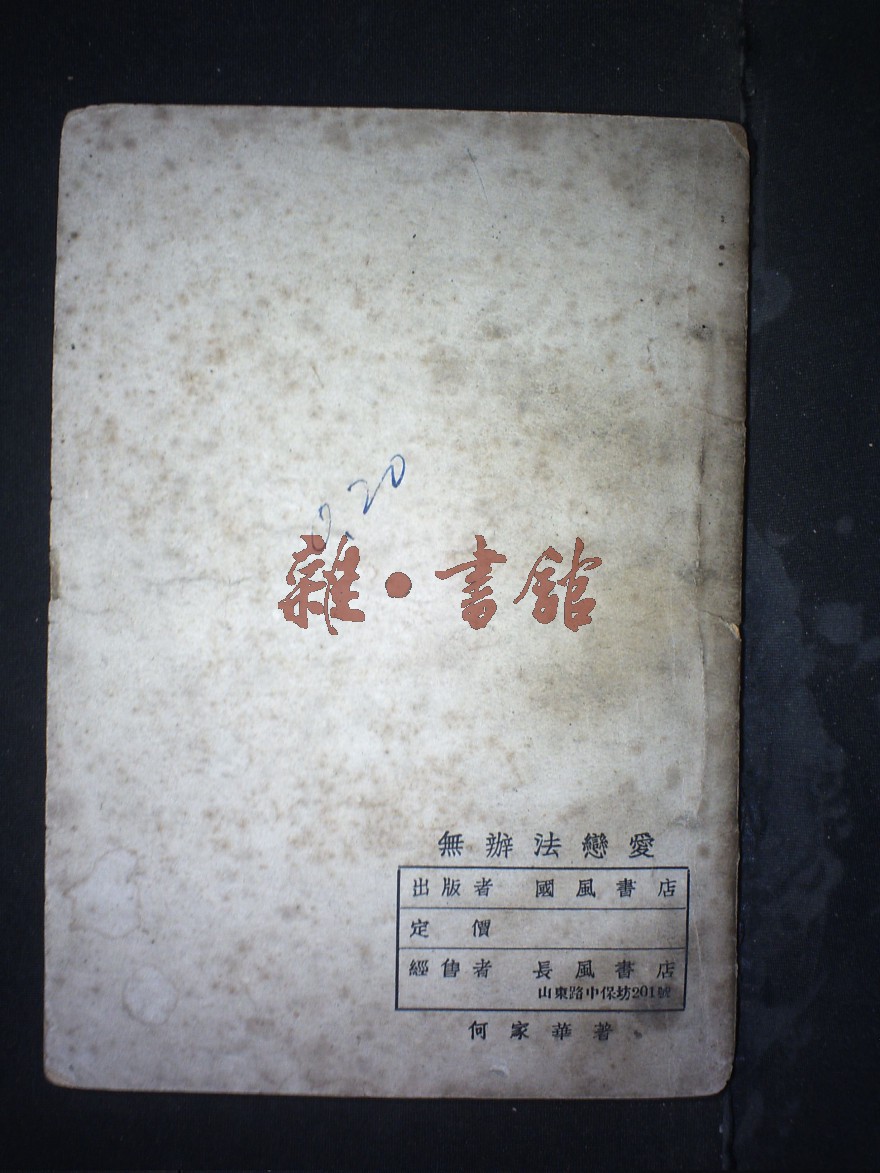 0.20
雜·書館
無辦法戀愛
出版者 國風書店
定價
經售者 長風書店
山東路中保坊201號
何家華著